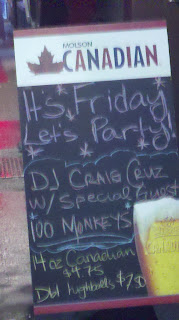 MOLSON
CANADIAN
It's Friday
Let's Party!
DJ CRAIG CRUZ
W/ Special Guest
100 MONKEYS
14 oz Canadian
$4.75
Dbl highballs $7.50